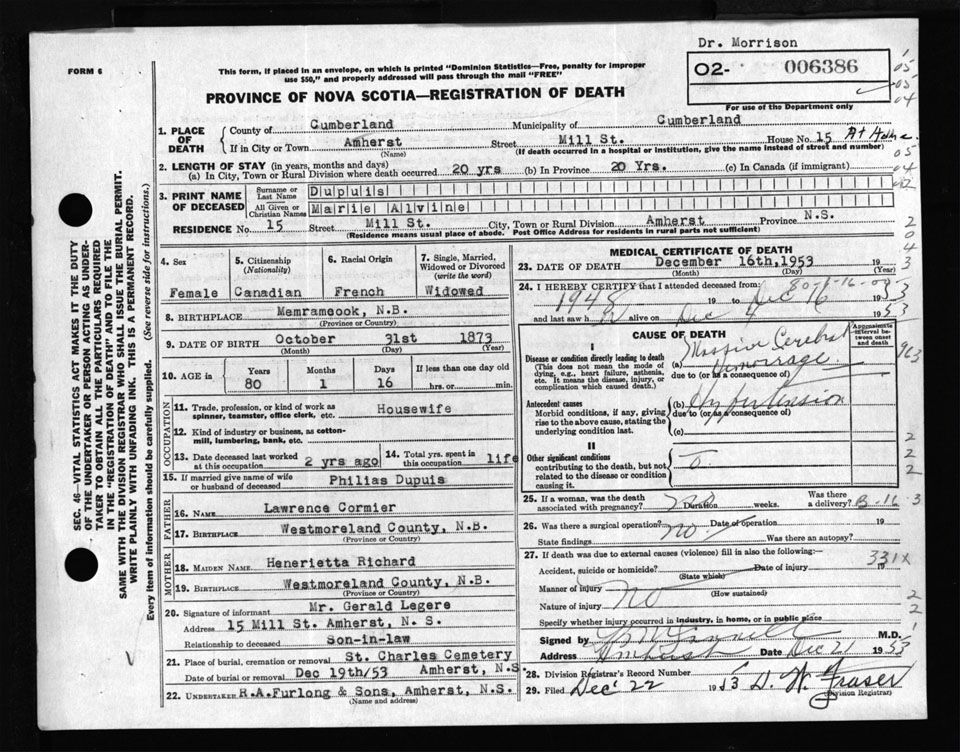 Dr. Morrison
FORM 6
This form, if placed in an envelope, on which is printed "Dominion Statistics—Free, penalty for improper
use $50," and properly addressed will pass through the mail "FREE"
02- 006386
For use of the Department only
PROVINCE OF NOVA SCOTIA—REGISTRATION OF DEATH
SEC. 46—VITAL STATISTICS ACT MAKES IT THE DUTY
OF THE UNDERTAKER OR PERSON ACTING AS UNDER-
TAKER TO OBTAIN ALL THE PARTICULARS REQUIRED
IN THE "REGISTRATION OF DEATH" AND TO FILE THE
SAME WITH THE DIVISION REGISTRAR WHO SHALL ISSUE THE BURIAL PERMIT.
WRITE PLAINLY WITH UNFADING INK. THIS IS A PERMANENT RECORD.
Every item of information should be carefully supplied. (See reverse side for instructions.)
1. PLACE OF DEATH
County of Cumberland Municipality of Cumberland
If in City or Town Amherst Street Mill St. House No. 15 At Home
(Name) (If death occurred in a hospital or institution, give the name instead of street and number)
2. LENGTH OF STAY (in years, months and days)
(a) In City, Town or Rural Division where death occurred 20 yrs (b) In Province 20 Yrs. (c) In Canada (if immigrant)
3. PRINT NAME OF DECEASED
Surname or Last Name Dupuis
All Given or Christian Names Marie Alvine
RESIDENCE No. 15 Street Mill St. City, Town or Rural Division Amherst Province N.S.
(Residence means usual place of abode. Post Office Address for residents in rural parts not sufficient)
4. Sex Female
5. Citizenship (Nationality) Canadian
6. Racial Origin French
7. Single, Married, Widowed or Divorced (write the word) Widowed
8. BIRTHPLACE Memramcook, N.B.
(Province or Country)
9. DATE OF BIRTH October 31st 1873
(Month) (Day) (Year)
10. AGE in Years 80 Months 1 Days 16 If less than one day old hrs. or min.
OCCUPATION
11. Trade, profession, or kind of work as spinner, teamster, office clerk, etc. Housewife
12. Kind of industry or business, as cotton-mill, lumbering, bank, etc.
13. Date deceased last worked at this occupation 2 yrs ago
14. Total yrs. spent in this occupation life
15. If married give name of wife or husband of deceased Philias Dupuis
FATHER
16. NAME Lawrence Cormier
17. BIRTHPLACE Westmoreland County, N.B.
(Province or Country)
MOTHER
18. MAIDEN NAME Henerietta Richard
19. BIRTHPLACE Westmoreland County, N.B.
(Province or Country)
20. Signature of informant Mr. Gerald Legere
Address 15 Mill St. Amherst, N. S.
Relationship to deceased Son-in-law
21. Place of burial, cremation or removal St. Charles Cemetery
Date of burial or removal Dec 19th/53 Amherst, N.S.
22. UNDERTAKER R.A.Furlong & Sons, Amherst, N.S.
(Name and address)
MEDICAL CERTIFICATE OF DEATH
23. DATE OF DEATH December 16th, 1953 19
(Month) (Day) (Year)
24. I HEREBY CERTIFY that I attended deceased from:
1948 19 to Dec 16 1953
and last saw h alive on Dec 4 1953
CAUSE OF DEATH
Approximate interval between onset and death
I
Disease or condition directly leading to death
(This does not mean the mode of dying, e.g., heart failure, asthenia, etc. It means the disease, injury, or complication which caused death.)
(a) Massive Cerebral Hemorrage
due to (or as a consequence of)
Antecedent causes
Morbid conditions, if any, giving rise to the above cause, stating the underlying condition last.
(b) Hypertension
due to (or as a consequence of)
(c)
II
Other significant conditions
contributing to the death, but not related to the disease or condition causing it.
25. If a woman, was the death associated with pregnancy? No Duration weeks. Was there a delivery? B-16
26. Was there a surgical operation? No Date of operation 19
State findings Was there an autopsy?
27. If death was due to external causes (violence) fill in also the following:— 331X
Accident, suicide or homicide? Date of injury 19
(State which)
Manner of injury No
(How sustained)
Nature of injury
Specify whether injury occurred in industry, in home, or in public place
Signed by M.D.
Address Amherst Date Dec 21 1953
28. Division Registrar's Record Number
29. Filed Dec 22 1953 D. W. Fraser
(Division Registrar)